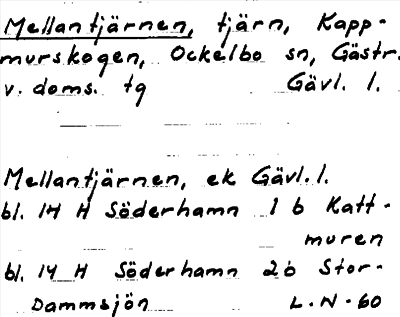 Mellantjärnen, tjärn, Kapp-
murskogen, Ockelbo sn, Gästr.
v. doms. tg Gävl. l.
Mellantjärnen, ek Gävl. l.
bl. 14 H Söderhamn 1 b Katt-
muren
bl. 14 H Söderhamn 2b Stor-
Dammsjön L.N-60